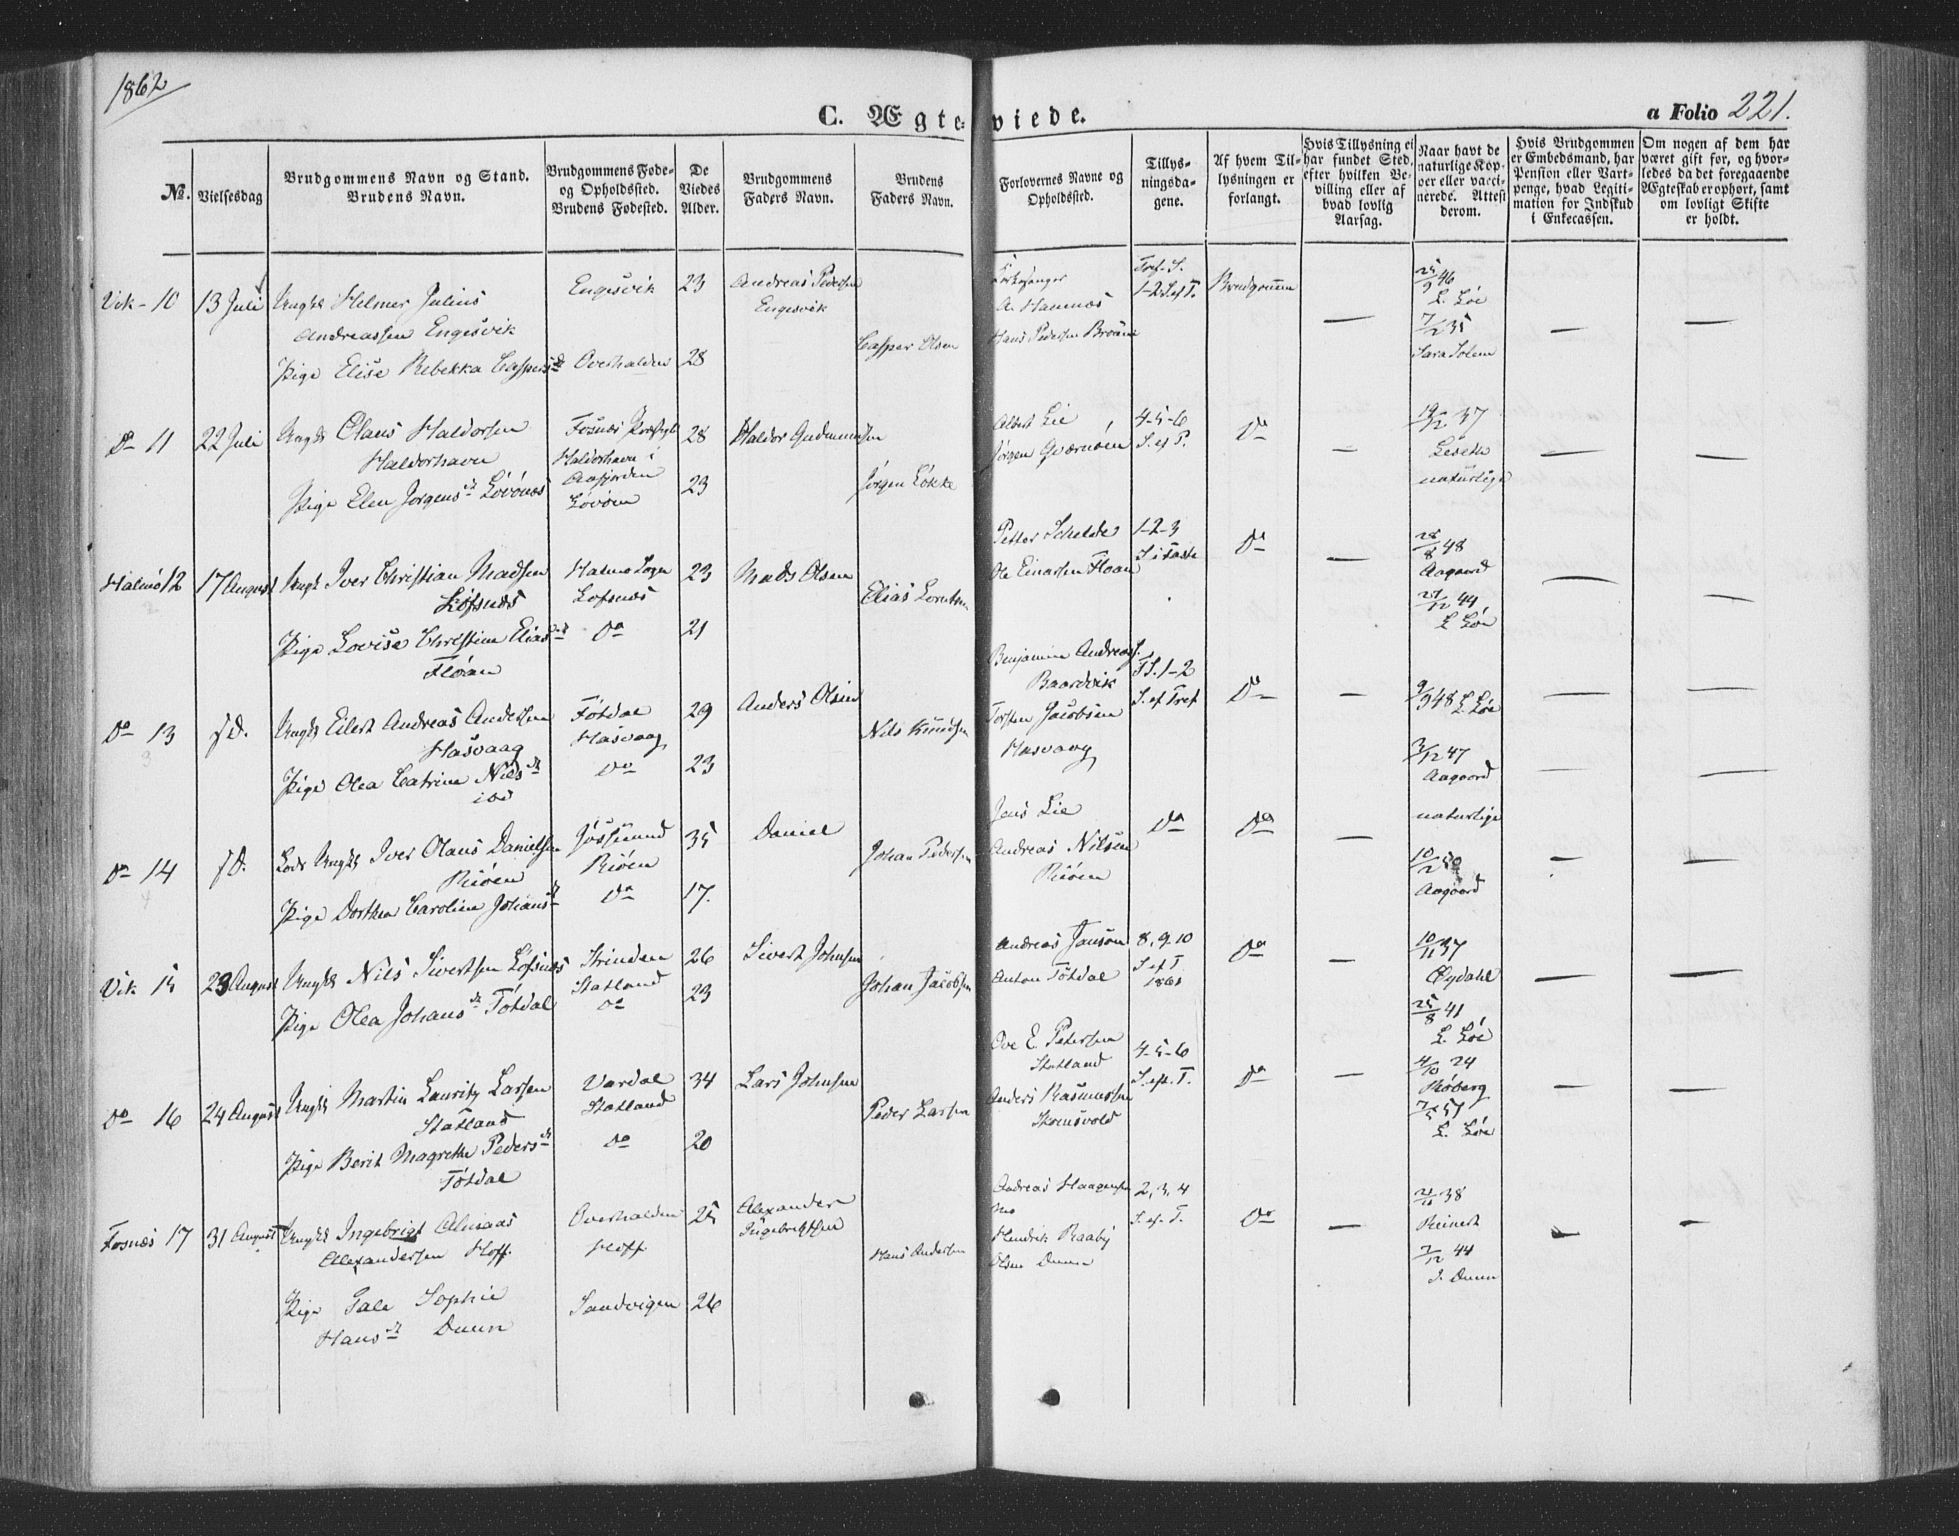 1862
C. Ægteviede.
a Folio 221.
No.
Vielsesdag
Brudgommens Navn og Stand.
Brudens Navn.
Brudgommens Føde-
og Opholdssted.
Brudens Fødested.
De
Viedes
Alder.
Brudgommens
Faders Navn.
Brudens
Faders Navn.
Forlovernes Navne og
Opholdssted.
Tillys-
ningsda-
gene.
Af hvem Til-
lysningen er
forlangt.
Hvis Tillysning ei
har fundet Sted,
efter hvilken Be-
villing eller af
hvad lovlig
Aarsag.
Naar havt de
naturlige Kop-
per eller vacci-
nerede. Attest
derom.
Hvis Brudgommen
er Embedsmand, har
Pension eller Vart-
penge, hvad Legiti-
mation for Indskud
i Enkecassen.
Om nogen af dem har
været gift før, og hvor-
ledes da det foregaaende
Ægteskab er ophørt, samt
om lovligt Skifte
er holdt.
Vik - 10 13 Juli Ungk Helmer Julius
Andreassen Engesvik
Engesvik 23 Andreas Pedersen
Engesvik
Pige Elise Rebekka Caspersd Overhalden 28
Casper Olsen
Kirkesanger
A. Hannæs
Hans Pedersen
1-2 S. ef T. Brudgommen
25/9 46
L. Løe
7/2 35
Sara Solem
Do 11 22 Juli Ungk Olaus Haldorsen
Haldorhavn
Fosnæs Præstgl
Haldorhavn i
28 Haldor Gudmundsen
Pige Elen Jørgensd Løvønes
Aafjorden
Løvøen
23
Jørgen Løkke
Albert Lie
Jørgen Qværnøen
4-5-6
S. ef P.
Do
19/12 37
naturlige
Halmø 12 17 August Ungk Iver Christian Madsen
Løfsnæs
Halmø Sogn
Lofsnæs
23 Mads Olsen
Pige Lovise Christine Eliasd
Fløan
Do 21
Elias Lorentsen
Petter Schelde
Ole Einarsen Floan
1-2-3
S. i Faste
Do
28/8 48
Aagaard
27/12 44
L Løe
Do 13 s.D. Ungk Eilert Andreas Andersen
Hasvaag
Føtdal
Hasvaag
29 Anders Olsen
Pige Olea Catrine Nilsd
ibd
Do 23
Nils Knudsen
Benjamin Andreass.
Baardvik
Torsten Jacobsen
Hasvaag
FS. 1-2
S. ef Tref
Do
9/9 48 L. Løe
3/12 47
Aagaard
Do 14 s.D. Lods Ungk Iver Olaus Danielsen
Riøen
Jøssund
Riøen
35 Daniel
Pige Dorthea Caroline Johansd
Do 17.
Johan Pedersen
Jens Lie
Andreas Nilsen
Riøen
Do Do
naturlige
10/2 50
Aagaard
Vik 15 23 August Ungk Nils Sivertsen Løfsnæs
Strinden
Statland
26 Sivert Johnsen
Pige Olea Johansd Føtdal
do 23
Johan Jacobsen
Andreas Janson
Anton Føtdal
8, 9, 10
S. ef T
1861
Do
10/11 37
Øydahl
25/8 41
L. Løe
Do 16 24 August Ungk Martin Lauritz Larsen
Statland
Vardal
Statland
34 Lars Johnsen
Pige Berit Magrethe Pedersd
Føtdal
Do 20
Peder Larsen
Ove E. Petersen
Statland
Anders Rasmussen
4-5-6
S. ef. T.
Do
4/10 24
Røberg
7/5 57
L. Løe
Fosnæs 17 31 August Ungk Ingebrigt Almaas
Alexandersen Hoff
Overhalden
Hoff
25 Alexander
Ingebrigtsen
Pige Gale Sophie
Hansd Duun
Sandvigen 26
Hans Andersen
Andreas Haagensen
Hendrik Raaby
Olsen Duun
2, 3, 4
S. ef. T.
Do
38
Reinert
7/12 44
J. Duun